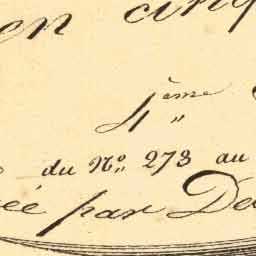 en cinq
4ème
du No. 273 au
ée par De